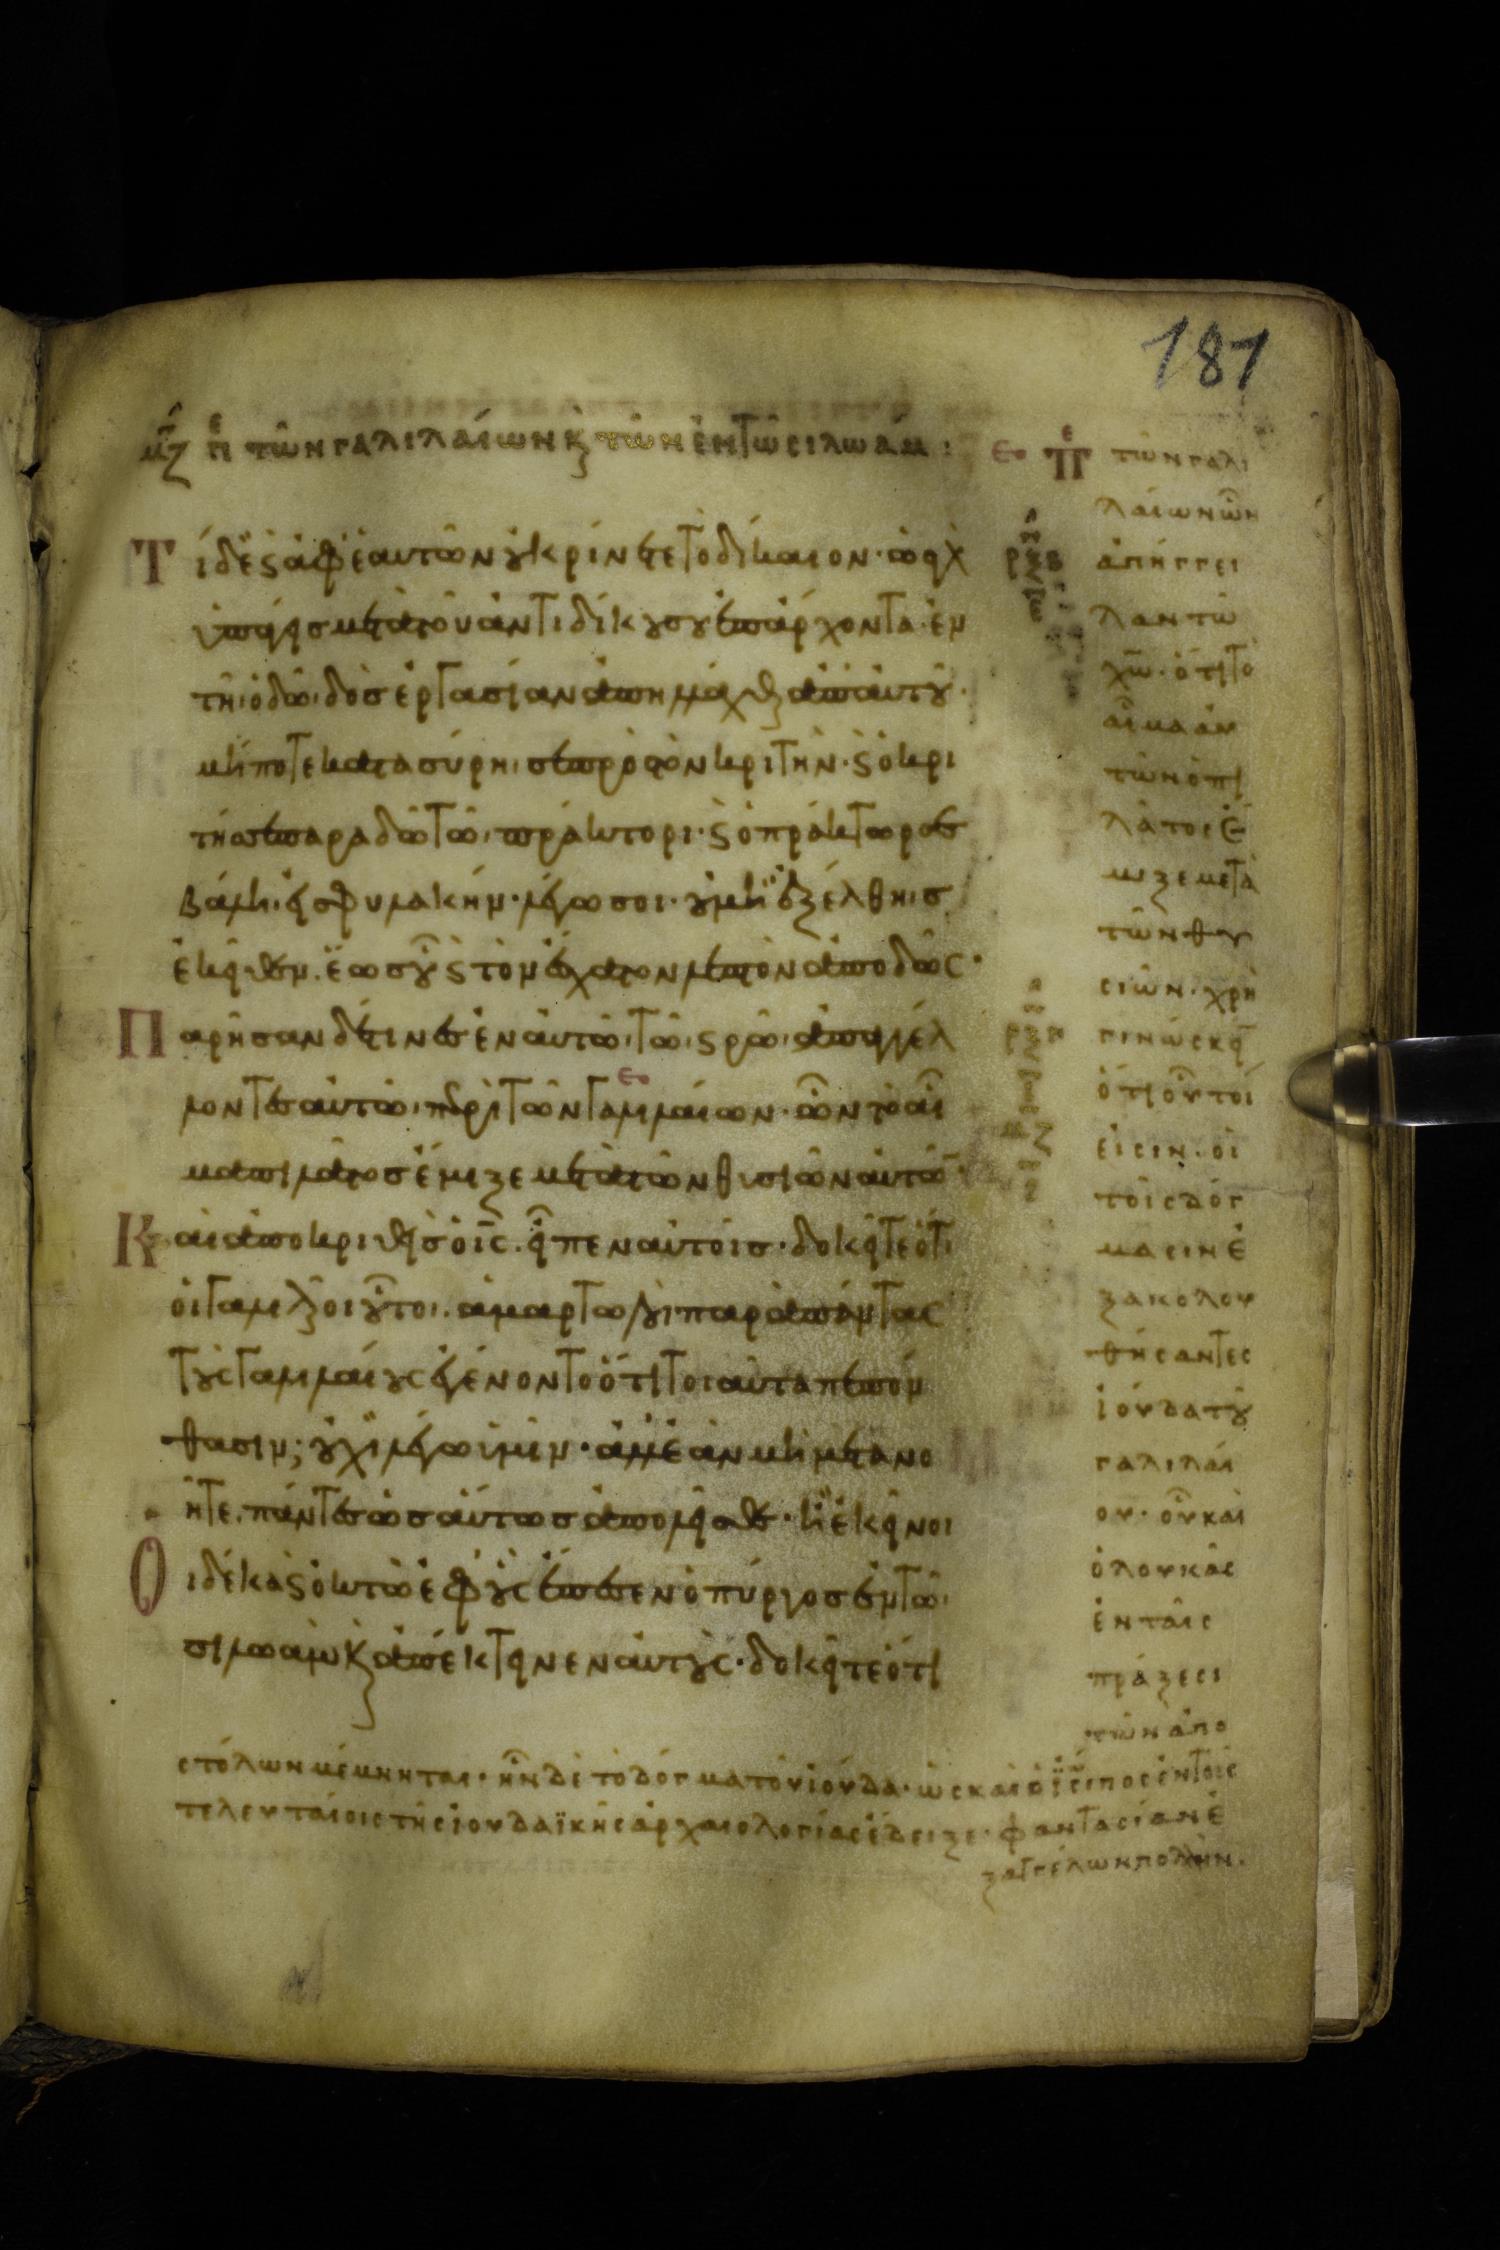 181
μζ πε τῶν γαλιλαίων κ τῶν ἐν τῶ σιλωάμ :
Τί δὲ ϛ ἀφ ἑαυτῶν οὐ κρίνετε τὸ δίκαιον · ὡς γὰρ
ὑπάγεις μετὰ τοῦ ἀντιδίκου σου ἐπ ἄρχοντα · ἐν
τῆ ὁδῶ · δὸς ἐργασίαν ἀπηλλάχθαι ἀπ αὐτοῦ ·
μήποτε κατασύρη σε πρὸς τὸν κριτὴν · ϛ ὁ κρι
τής σε παραδῶ τῶ πράκτορι · ϛ ὁ πράκτωρ σε
βάλη εἰς φυλακήν · λέγω σοι · οὐ μὴ ἐξέλθης
ἐκεῖθεν · ἕως οὗ ϛ τὸ ἔσχατον λεπτὸν ἀποδῶς ·
Παρῆσαν δέ τινες ἐν αὐτῶ τῶ καιρῶ ἀπαγγέλ
λοντες αὐτῶ περὶ τῶν γαλιλαίων · ὧν τὸ αἷ
μα πιλάτος ἔμιξε μετὰ τῶν θυσιῶν αὐτῶν ·
Καὶ ἀποκριθεὶς ὁ ις · εἶπεν αὐτοῖς · δοκεῖτε ὅτι
οἱ γαλιλαῖοι οὗτοι · ἁμαρτωλοὶ παρὰ πάντας
τοὺς γαλιλαίους ἐγένοντο ὅτι τοιαῦτα πεπόν
θασιν ; οὐχὶ λέγω ὑμῖν · ἀλλ ἐὰν μὴ μετανο
ῆτε · πάντες ὡσαύτως ἀπολεῖσθε · ἢ ἐκεῖνοι
Οἱ δέκα ϛ ὀκτὼ ἐφ οὓς ἔπεσεν ὁ πύργος ἐν τῶ
σιλωὰμ κ ἀπέκτεινεν αὐτούς · δοκεῖτε ὅτι
πε τῶν γαλι
λαίων ὧν
ἀπήγγει
λαν τῶ
χω · ὅτι τὸ
αἷμα αὐ
τῶν ὁ πι
λάτος ἔ
μιξε μετὰ
τῶν θυ
σιῶν · χρὴ
γινώσκειν
ὅτι οὗτοί
εἰσιν · οἱ
τοῖς δόγ
μασιν ἐ
ξακολου
θήσαντες
ἰούδα τοῦ
γαλιλαί
ου · οὗ καὶ
ὁ λουκᾶς
ἐν ταῖς
πράξεσι
τῶν ἀπο
στόλων μέμνηται · ἦν δὲ τὸ δόγμα τοῦ ἰούδα · ὡς καὶ ὁ ἰώσιπος ἐν τοῖς
τελευταίοις τῆς ἰουδαϊκῆς ἀρχαιολογίας ἔδειξε · φαντασίαν ἐ
ξαγγέλων πολλὴν ·